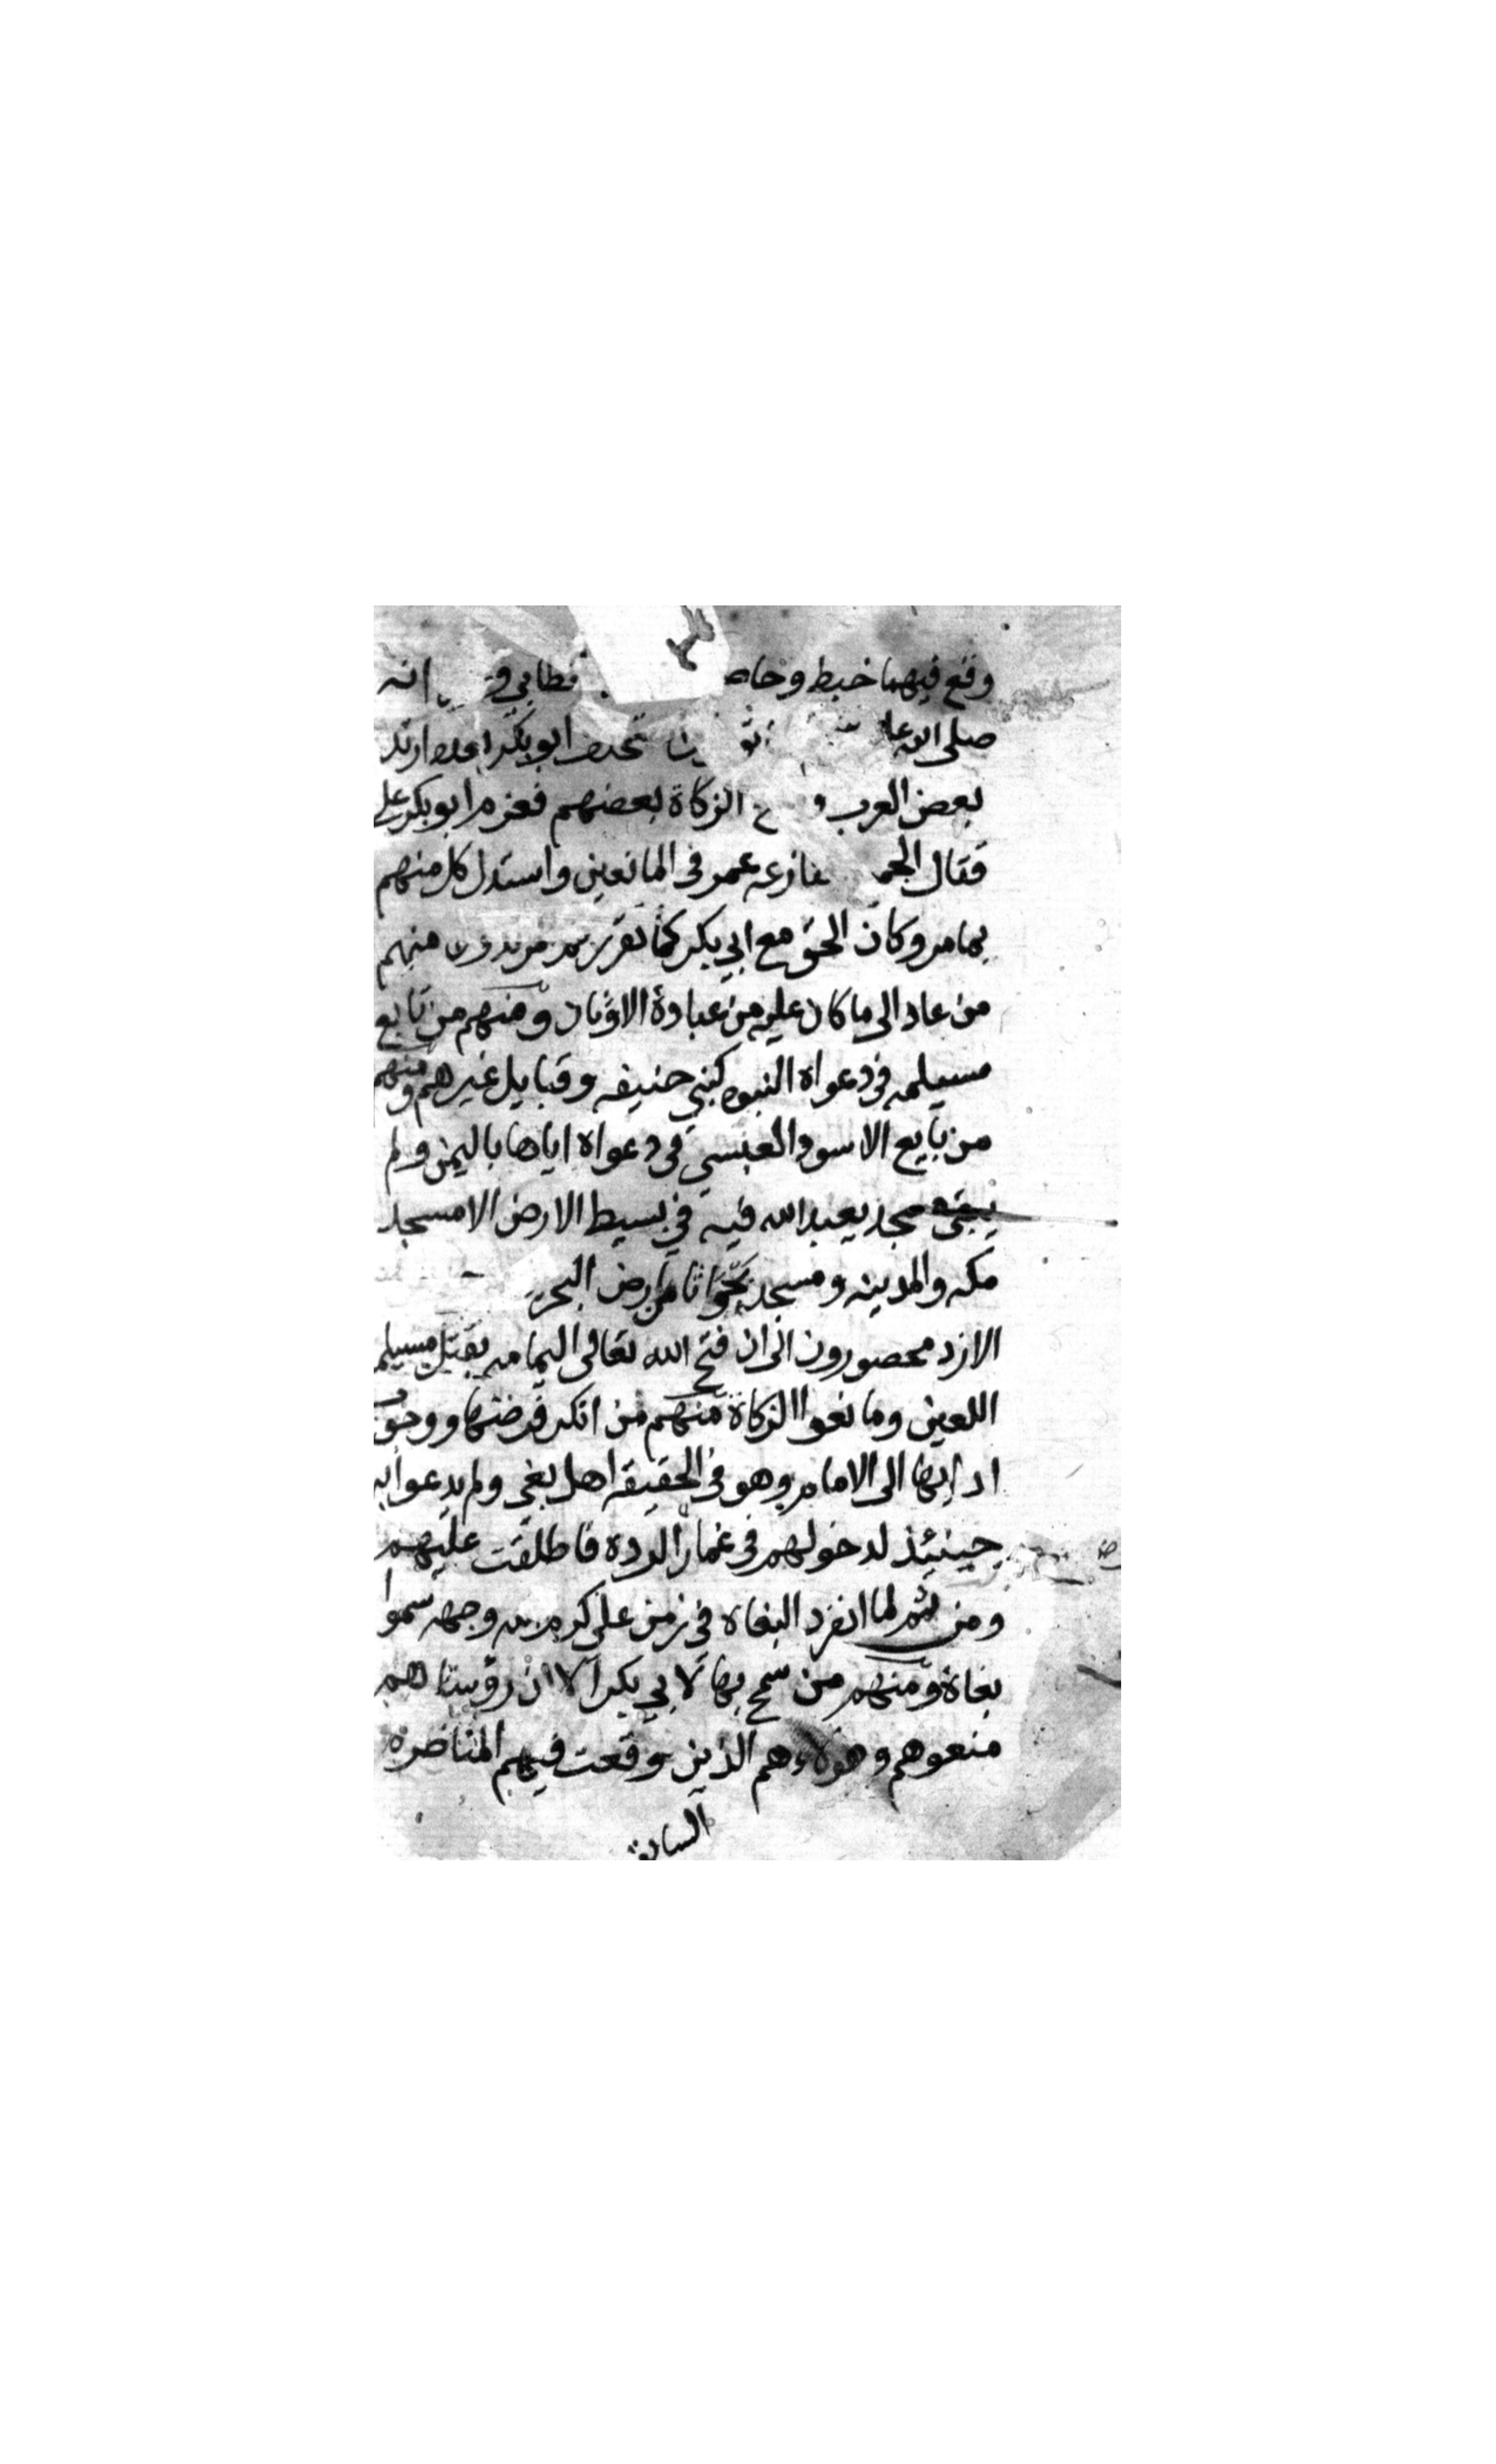 وقع فيهما خبط وحاصـ خطابي انه
صلى الله علـ ابو بكر بعده ارتد
بعض العرب الزكاة بعضهم فعزم ابو بكر على
فقال الجمـ فنازعه عمر في المانعين واستدل كل منهم
بما مر وكان الحق مع ابي بكر كما تقرر منهم
من عاد الى ما كان عليه من عبادة الاوثان ومنهم من تابع
مسيلمه في دعواه النبوه كبني حنيفه وقبايل غيرهم ومنهم
من بايع الاسود العنسي في دعواه اياها باليمن ولم
يبق مسجد يعبد الله فيه في بسيط الارض الا مسجد
مكه والمدينه ومسجد بجواثا من ارض البحر
الازد محصورون الى ان فتح الله تعالى اليمامه بقتل مسيلمه
اللعين وما نعوا الزكاة منهم من انكر فرضها ووجوب
ادايها الى الامام وهو في الحقيقه اهل بغي ولم يدعوا به
حينيئذ لدخولهم في غمار الردة فاطلقت عليهم
ومن ثم لما انفرد البغاه في زمن علي كرم الله وجهه سموا
بغاة ومنهم من سمح بها لابي بكر الا ان رؤساهم
منعوهم وهولاء هم الذين وقعت فيهم المناضره
السابقه